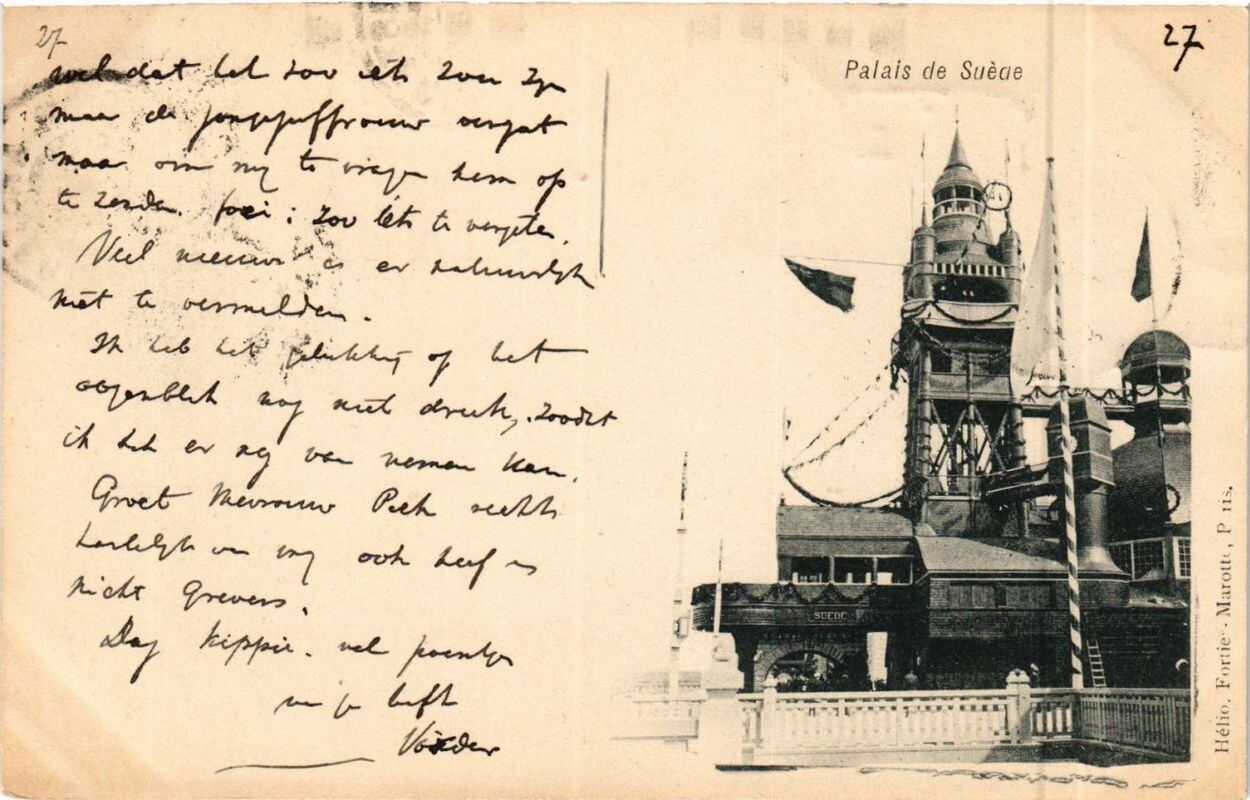 27
wel dat het zoo iets zou zyn
maar de jongejuffrouw vergat
maar om my te vragen hem op
te zenden. foei : zoo iets te vergeten.
Veel nieuws is er natuurlyk
niet te vermelden.
Ik heb het gelukkig op het
oogenblik nog niet druk, zoodat
ik het er nog van nemen kan.
Groet Mevrouw Pek rechts
hartelyk van my ook heef
nicht Grevers.
Dag Kippie. vel poentjes
van je
Vader
27
Palais de Suède
SUEDE
Hélio. Fortier-Marotte, P ris.